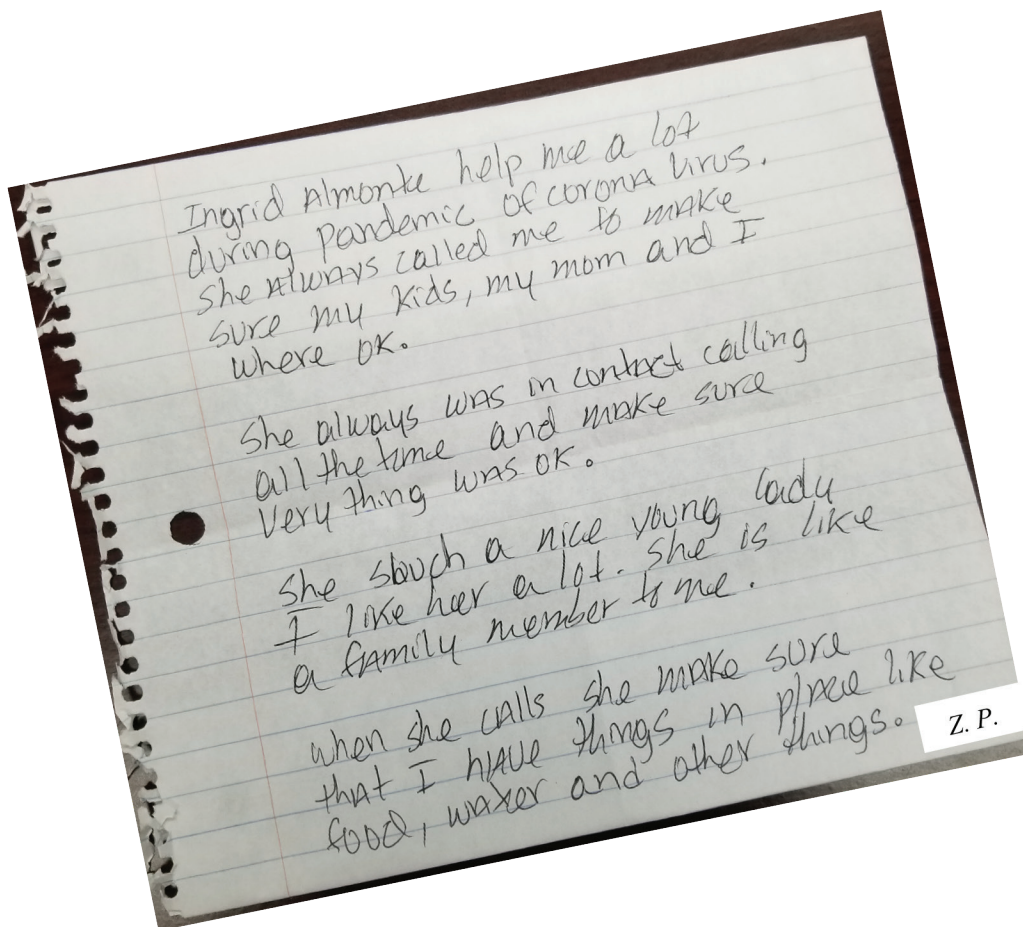 Ingrid Almonte help me a lot
during pandemic of corona virus.
She Always called me to make
sure my kids, my mom and I
where ok.
She always was in contact calling
all the time and make sure
very thing was ok.
She sbuch a nice young lady
I like her a lot. She is like
a family member to me.
when she calls she make sure
that I have things in place like
food, water and other things.
Z. P.